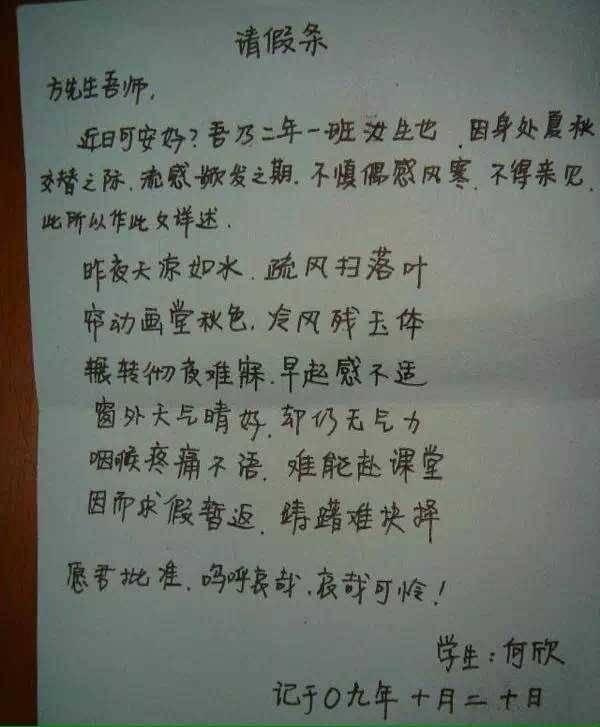 请假条
方先生吾师,
近日可安好?吾乃二年一班汝生也,因身处夏秋
交替之际,流感掀发之期,不慎偶感风寒,不得来见,
此所以作此文详述.
昨夜天凉如水,疏风扫落叶
帘动画堂秋色,冷风残玉体
辗转彻夜难寐,早起感不适
窗外天气晴好,却仍无气力
咽喉疼痛不语,难能赴课堂
因而求假暂返,踌躇难抉择
愿君批准,呜呼哀哉,哀哉可怜!
学生:何欣
记于〇九年十月二十日